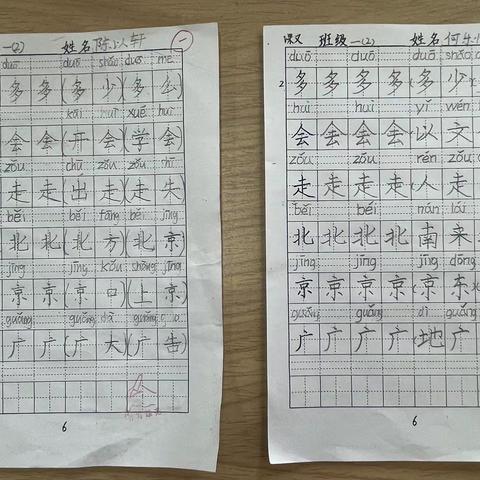 一(2) 姓名 陈以轩 一
duō duō shǎo duō me
多 多 (多 少)(多 么)
kāi huì xué huì
会 会 (开 会)(学 会)
zǒu chū zǒu zǒu
走 走 (出 走)(走 失)
běi běi fāng běi jīng
北 北 (北 方)(北 京)
jīng jīng kǒu shàng jīng
京 京 (京 口)(上 京)
guǎng guǎng dà guǎng
广 广 (广 大)(广 告)
6
课文 班级 一(2) 姓名 何
duō duō duō shǎo
2 多 多 多 多 (多 少
huì huì yǐ wén
会 会 会 会 以 文
zǒu zǒu rén zǒu
走 走 走 走 (人 走
běi běi nán lái
北 北 北 北 南 来
jīng jīng jīng dōng
京 京 京 京 (京 东
guǎng guǎng dì guǎng
广 广 广 广 (地 广
6